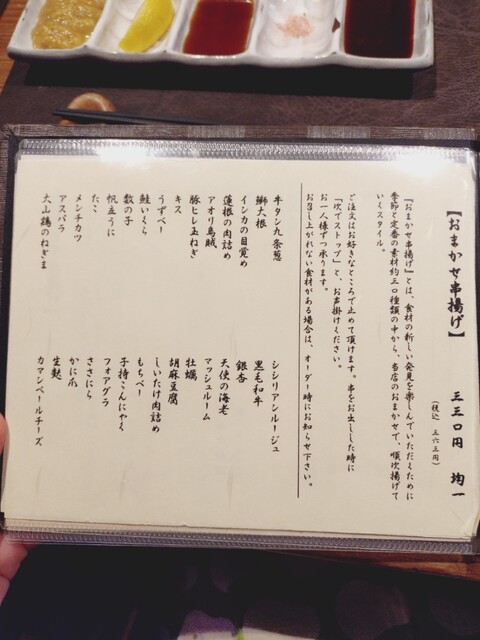 【おまかせ串揚げ】 三三〇円 均一
(税込 三六三円)
『おまかせ串揚げ』とは、食材の新しい発見を楽しんでいただくために
季節と定番の素材約三〇種類の中から、当店のおまかせで、順次揚げて
いくスタイル。
ご注文はお好きなところで止めて頂けます。串をお出しした時に
「次でストップ」と、お声掛けください。
お一人様ずつ承ります。
お召し上がれない食材がある場合は、オーダー時にお知らせ下さい。
牛タン九条葱
鰤大根
インカの目覚め
蓮根の肉詰め
アオリ烏賊
豚ヒレ玉ねぎ
キス
うずベー
鮭いくら
数の子
帆立うに
たこ
メンチカツ
アスパラ
大山鶏のねぎま
シシリアンルージュ
黒毛和牛
銀杏
天使の海老
マッシュルーム
牡蠣
胡麻豆腐
しいたけ肉詰め
もちベー
子持こんにゃく
フォアグラ
ささにら
かに爪
生麩
カマンベールチーズ